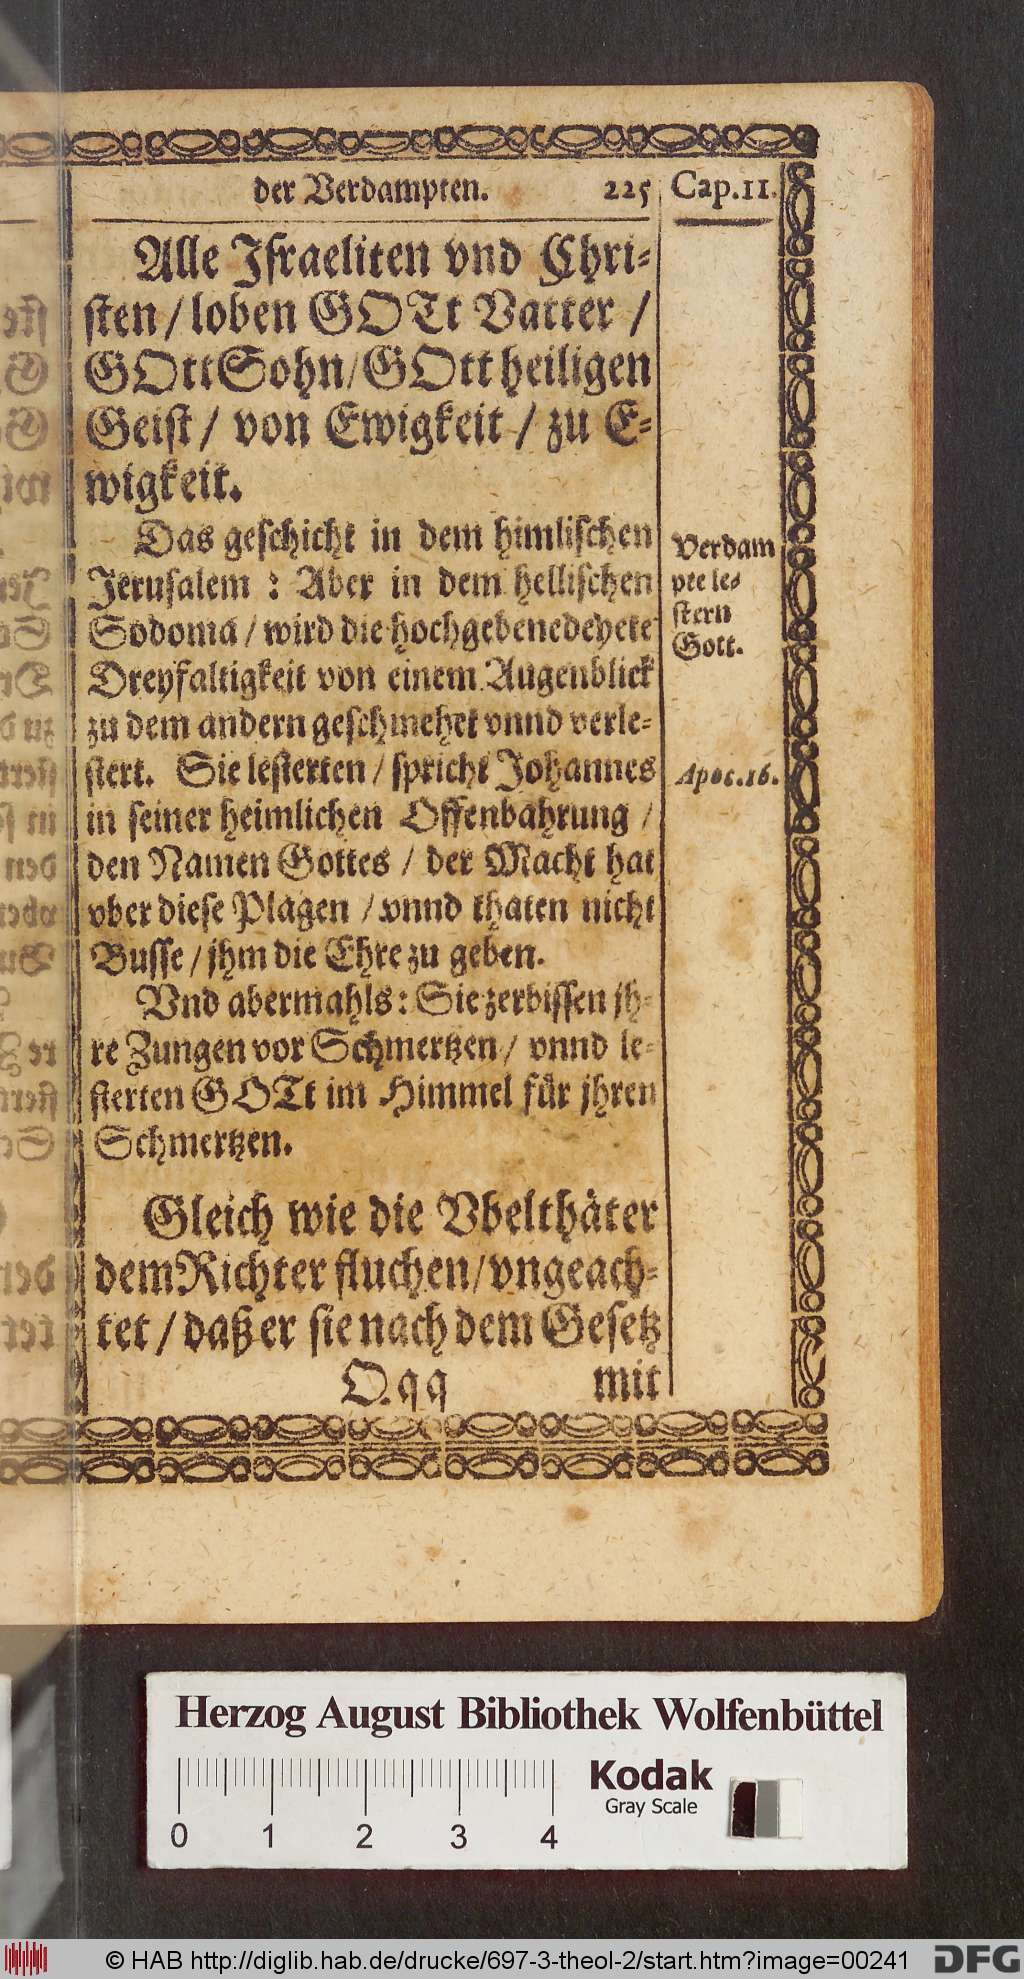 der Verdampten. 225 Cap.11.
Alle Jsraeliten vnd Chri-
sten / loben GOTt Vatter /
GOtt Sohn / GOtt heiligen
Geist / von Ewigkeit / zu E-
wigkeit.
Das geschicht in dem himlischen
Jerusalem : Aber in dem hellischen
Sodoma / wird die hochgebenedeyete
Dreyfaltigkeit von einem Augenblick
zu dem andern geschmehet vnnd verle-
stert. Sie lesterten / spricht Johannes
in seiner heimlichen Offenbahrung /
den Namen Gottes / der Macht hat
vber diese Plagen / vnnd thaten nicht
Busse / jhm die Ehre zu geben.
Vnd abermahls : Sie zerbissen jh-
re Zungen vor Schmertzen / vnnd le-
sterten GOTt im Himmel für jhren
Schmertzen.
Gleich wie die Vbelthäter
dem Richter fluchen / vngeach-
tet / daß er sie nach dem Gesetz
O.qq mit
Verdam
pte le-
stern
Gott.
Apoc.16.
Herzog August Bibliothek Wolfenbüttel
Kodak
Gray Scale
0 1 2 3 4
© HAB http://diglib.hab.de/drucke/697-3-theol-2/start.htm?image=00241
DFG